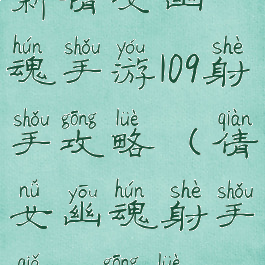 新倩女幽
hún shǒu yóu shè
魂手游109射
shǒu gōng lüè qiàn
手攻略（倩
nǚ yōu hún shè shǒu
女幽魂射手
gōng lüè